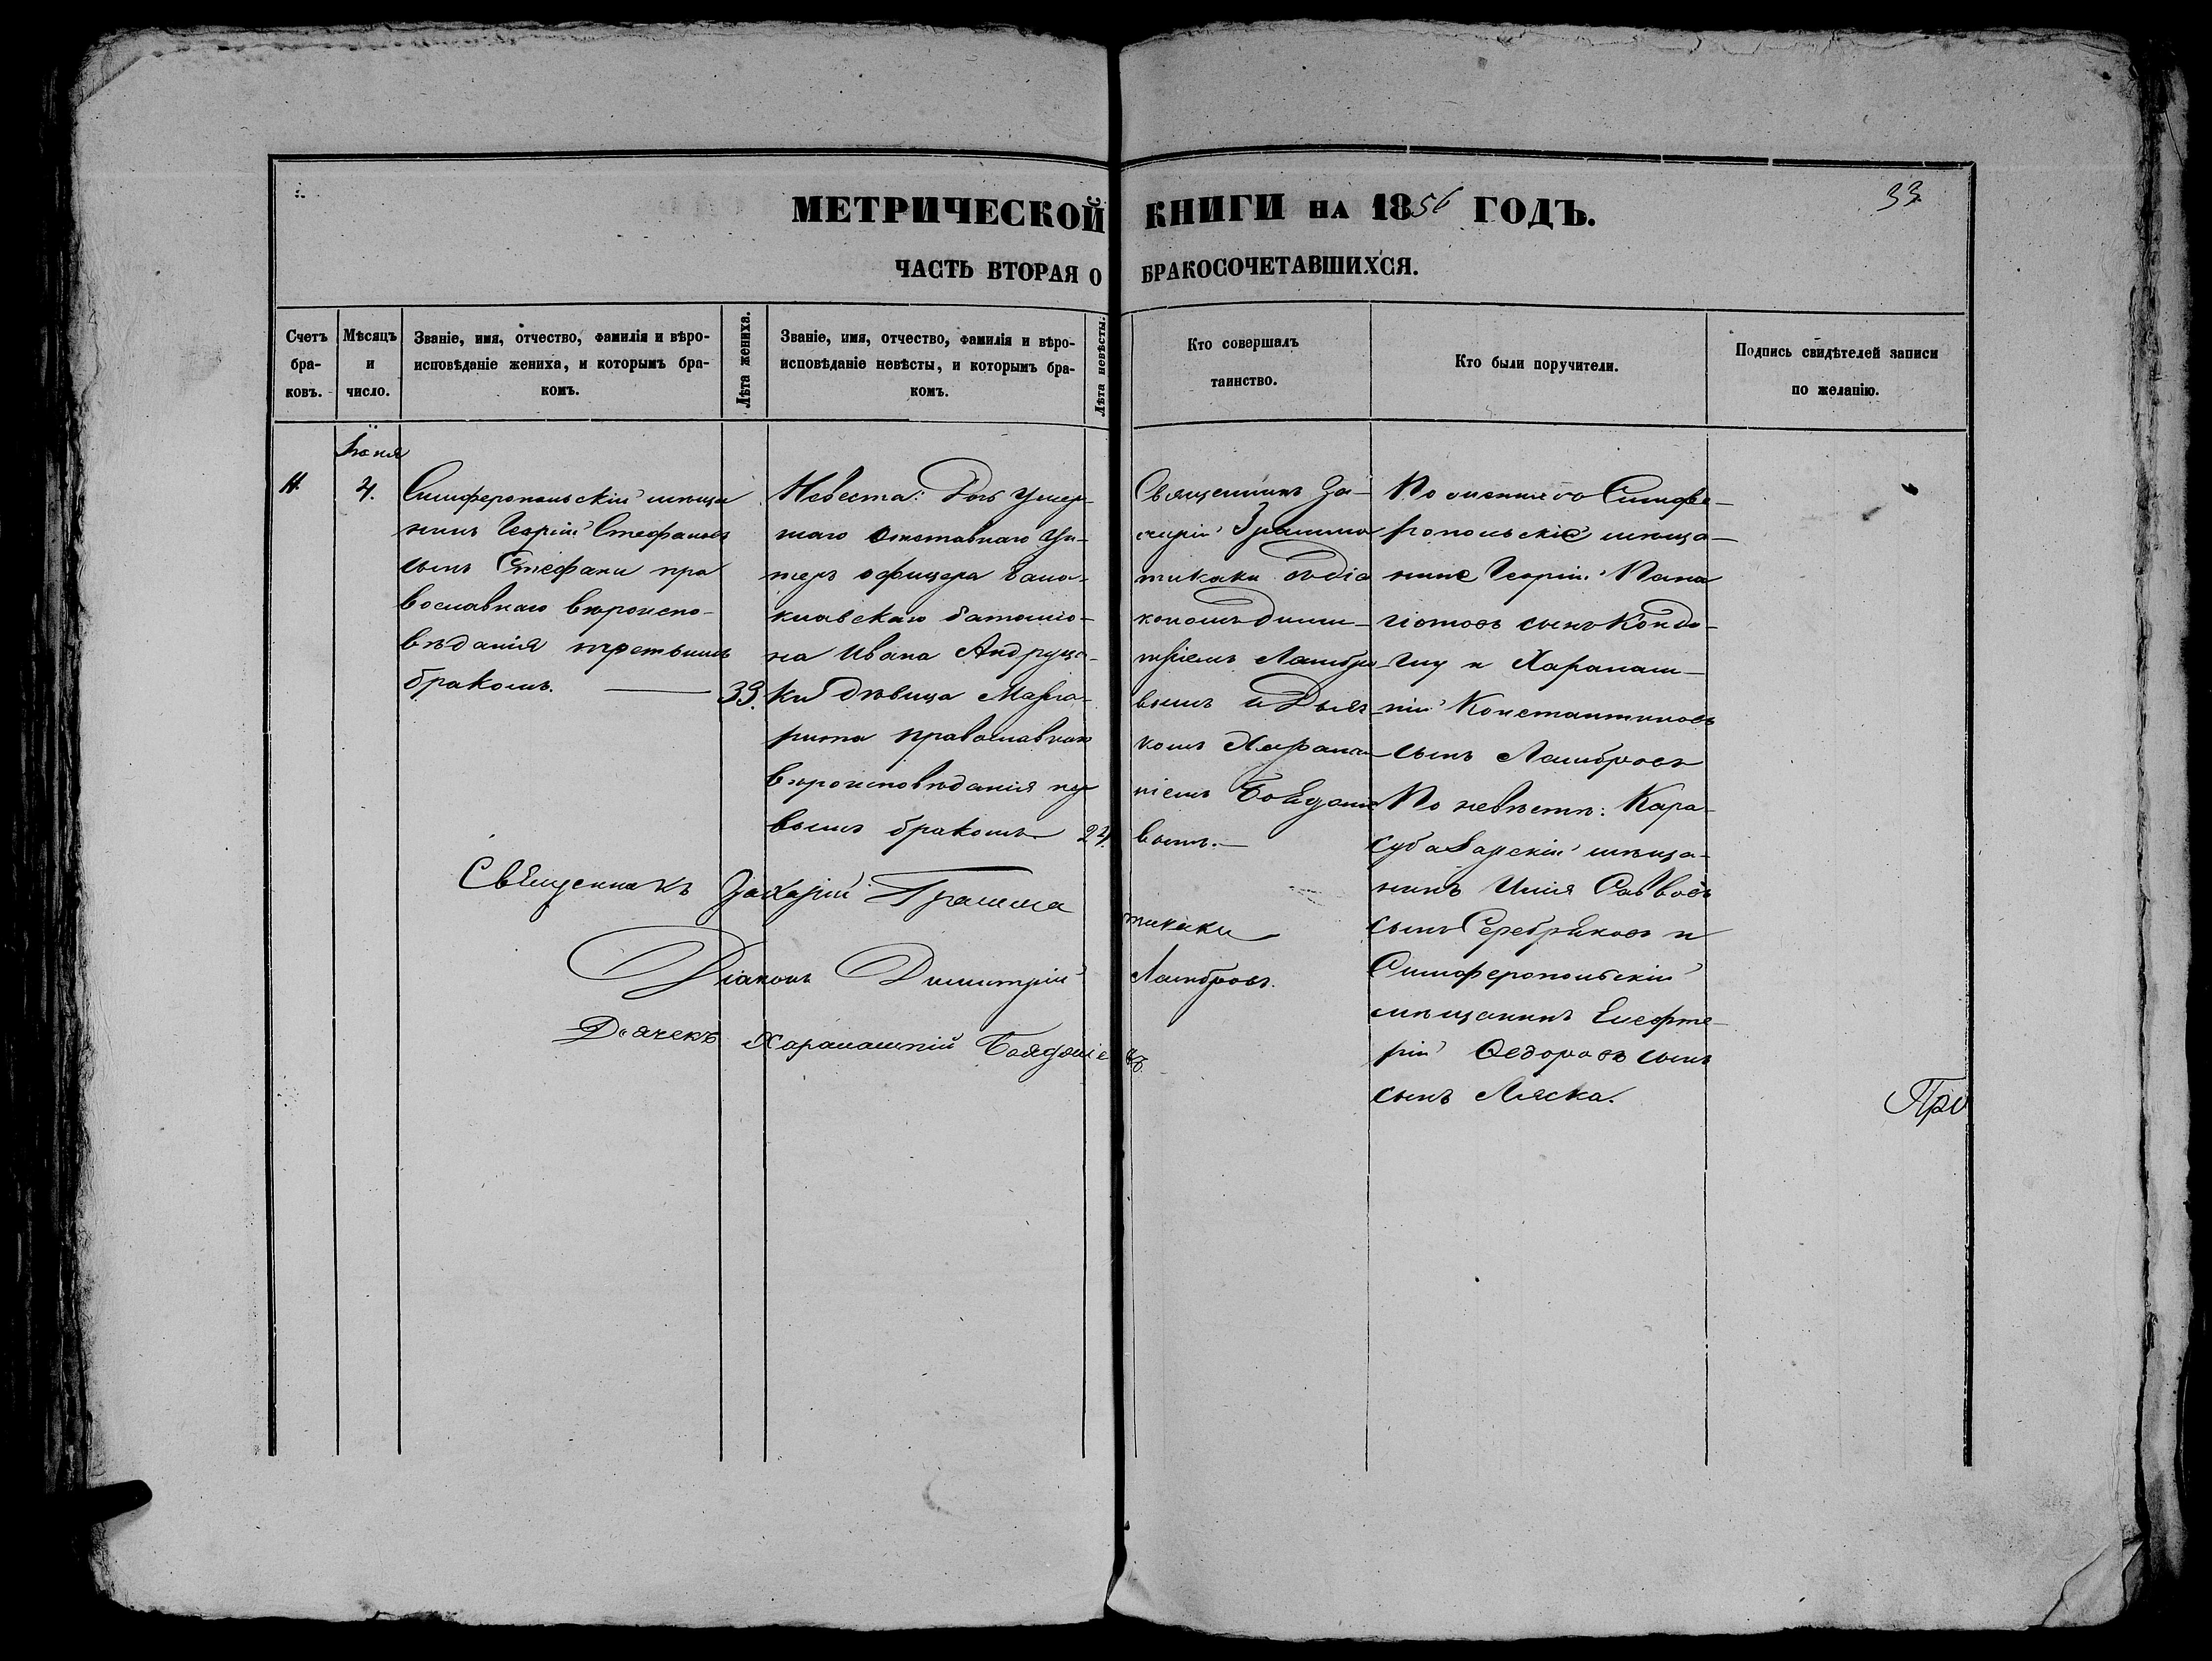 МЕТРИЧЕСКОЙ КНИГИ НА 1856 ГОДЪ.
33
ЧАСТЬ ВТОРАЯ О БРАКОСОЧЕТАВШИХСЯ.
Счетъ
бра-
ковъ.
Мѣсяцъ
и
число.
Званіе, имя, отчество, фамилія и вѣро-
исповѣданіе жениха, и которымъ бра-
комъ.
Лѣта жениха.
Званіе, имя, отчество, фамилія и вѣро-
исповѣданіе невѣсты, и которымъ бра-
комъ.
Лѣта невѣсты.
Кто совершалъ
таинство.
Кто были поручители.
Подпись свидѣтелей записи
по желанію.
Іюня
4.
Симферопольскій мѣща
нинъ Георгій Стефановъ
сынъ Стефани пра
вославнаго вѣроиспо-
вѣданія третьимъ
бракомъ. — 33.
Невеста: Дочь умер-
шаго отставнаго Ун-
теръ офицера Бала-
клавскаго баталіо-
на Ивана Андруца-
ки дѣвица Марга-
рита православнаго
вѣроисповѣданія пер
вымъ бракомъ 24.
Священникъ За-
харій Грамма
тикаки съ діа
кономъ Дими-
тріемъ Ламбро
вымъ и Дьяч
комъ Харалам
піемъ
вымъ.—
По женихѣ Симфе-
ропольскіе мѣща-
нине Георгій Пана
гіотовъ сынъ
и Харалам-
пій Константиновъ
сынъ Ламбровъ
По невѣстѣ: Кара-
субазарскій мѣща-
нинъ Илія Саввовъ
сынъ Серебряковъ и
Симферопольскій
мѣщанинъ Елефте-
рій Ѳедоровъ сынъ
сынъ Ляска.
Священникъ Захарій Грамматикаки
Діаконъ Димитрій Ламбровъ.
Дьячекъ Харалампій
При